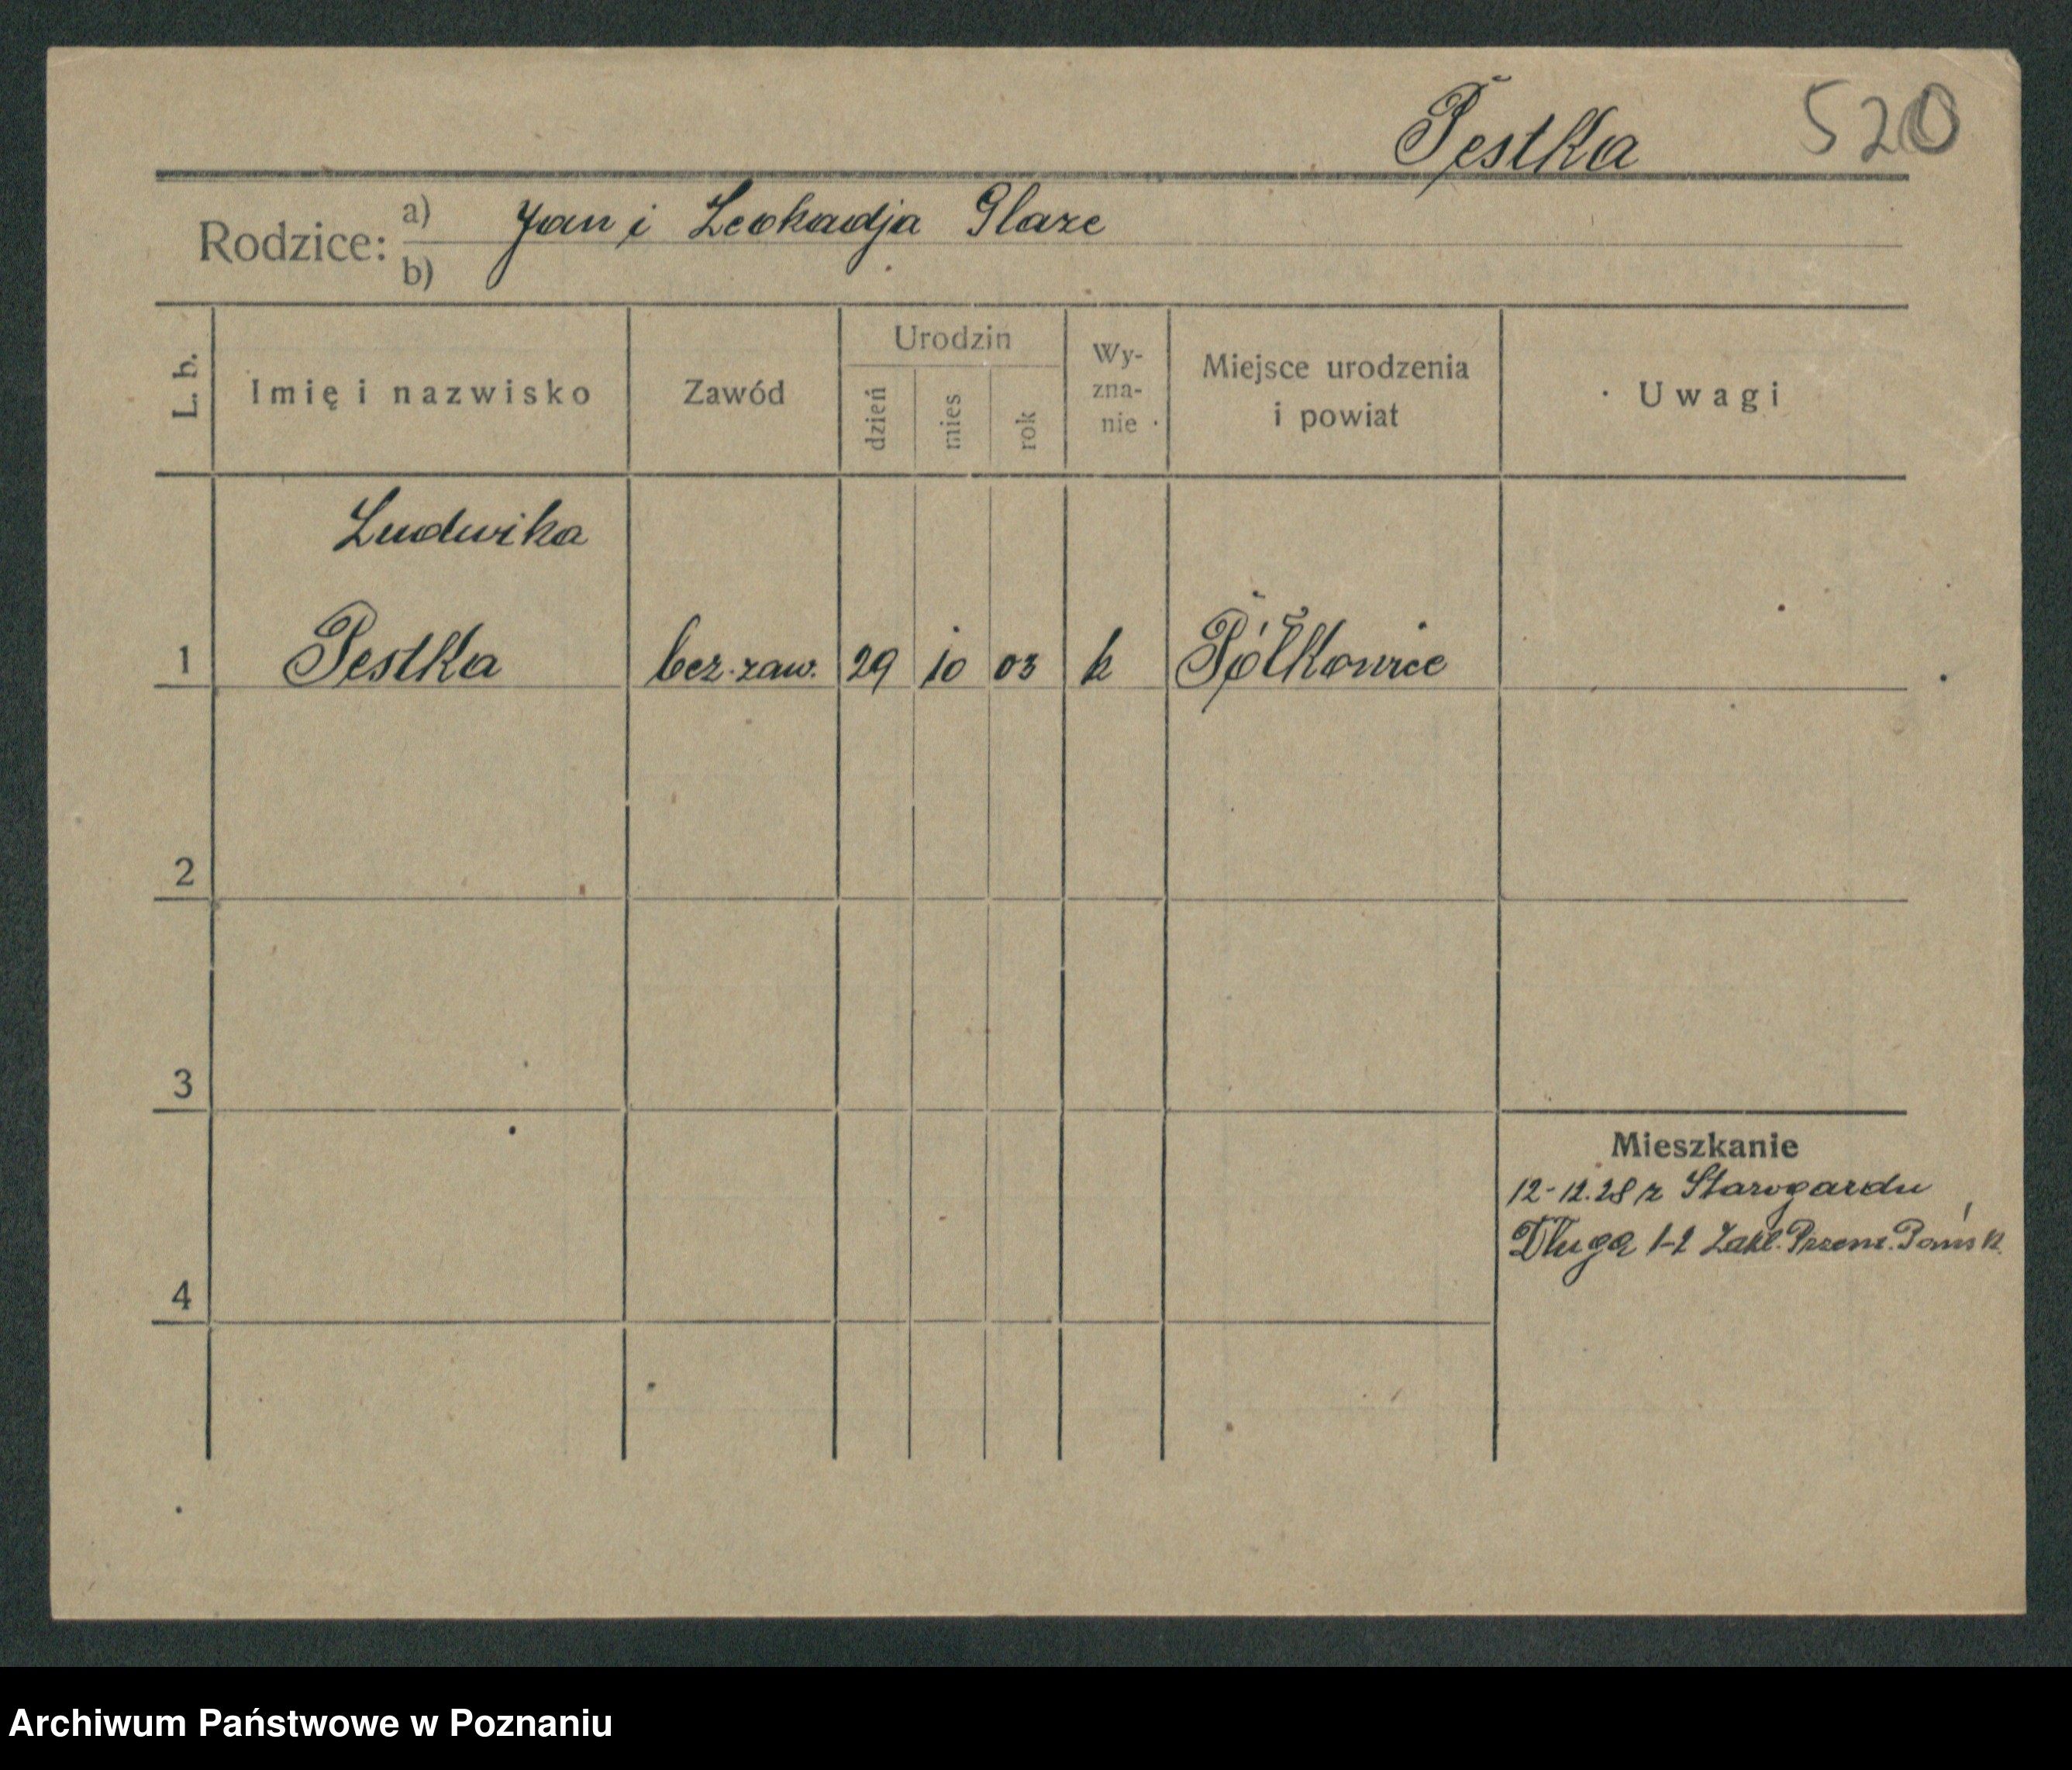 Pestka 520
Rodzice: a) Jan i Leokadja Glaze
b)
L. b. Imię i nazwisko Zawód Urodzin dzień mies rok Wy-zna-nie Miejsce urodzenia i powiat Uwagi
Ludwika
1 Pestka bez zaw. 29 10 03 k Pólkowice
2
3
Mieszkanie
12-12.28 z Starogardu
Długa 1-2 Zakł. Przem. Pańs
4
Archiwum Państwowe w Poznaniu